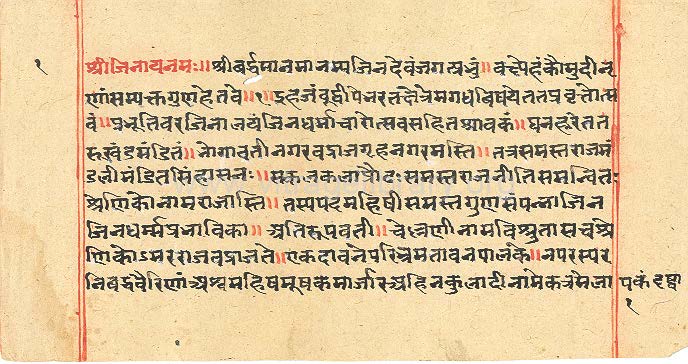 १
श्रीजिनायनमः॥श्रीवर्द्धमानमानम्यजिनदेवंजगत्प्रभुं॥वक्ष्येहंकौमुदीनृ
णांसम्यक्तगुणहेतवे॥१॥इहजंबूद्वीपेभरतक्षेत्रेमगधविषये
वं॥ सहितश्रावकं॥
मंडितं॥भोगावतीनगरवद्राजगृहनगरमस्ति॥तत्रसमस्तराजमं
डलीमंडितसिंहासनः॥सकलकलाप्रौढःसमस्तराजनीतिसमन्वितः
श्रेणिकोनामराजास्ति॥तस्यपट्टमहिषीसमस्तगुणसंपन्नाजिन
जिनधर्म्मप्रभाविका॥अतिरूपवती॥चेलणीनामविश्रुतासचश्रे
णिकोऽमरराजवद्राजते॥एकदावनेपरिभ्रमतावनपालके॥नपरस्पर
निबद्धवैरिणांअश्वमहिषमूषकमार्जारअहिनकुलादीनामेकत्रमेलापकंदृष्ट्वा
१